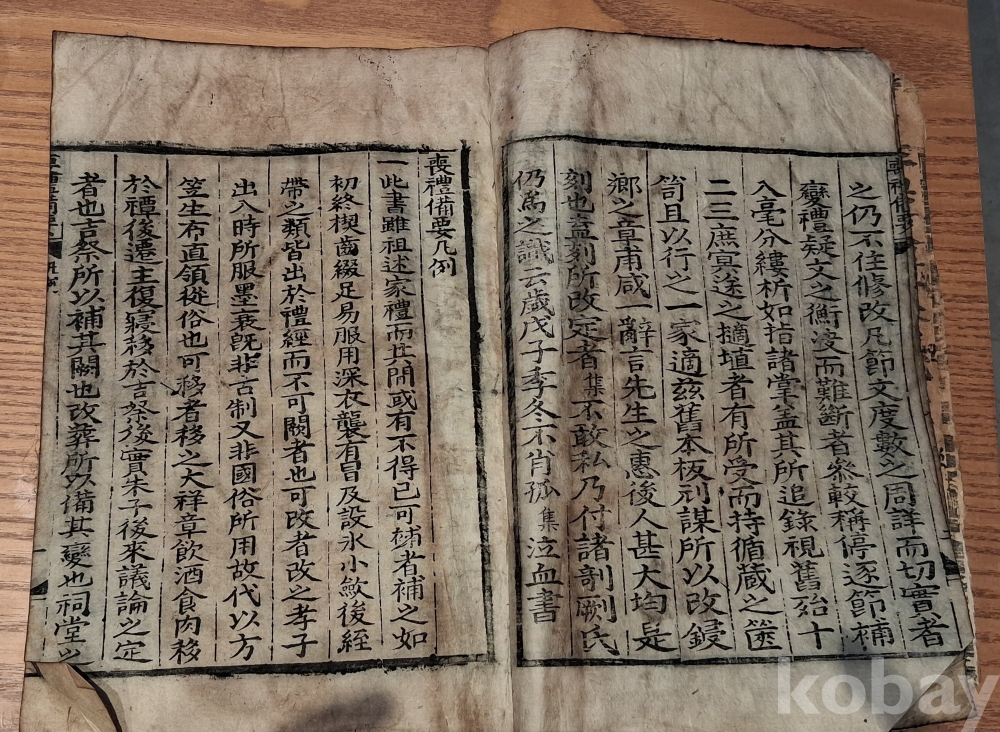 之仍不住修改凡節文度數之周詳而切實者
變禮疑文之衡決而難斷者參較稱停逐節補
入毫分縷析如指諸掌盖其所追錄視舊殆十
二三庶冥途之擿埴者有所受而持循蔵之篋
笥且以行之一家適玆舊本板刓謀所以改鋟
鄕之章甫咸一辭言先生之惠後人甚大均是
刻也盍刻所改定者集不敢私乃付諸剞劂氏
仍爲之識云歲戊子季冬不肖孤集泣血書
喪禮備要凡例
一此書雖祖述家禮而其間或有不得已可補者補之如
初終楔齒綴足易服用深衣襲有冒及設氷小斂後絰
帶之類皆出於禮經而不可闕者也可改者改之孝子
出入時所服墨衰旣非古制又非國俗所用故代以方
笠生布直領從俗也可移者移之大祥章飮酒食肉移
於禫後遷主復寢移於吉祭後實朱子後來議論之定
者也吉祭所以補其闕也改葬所以備其變也祠堂之
kobay